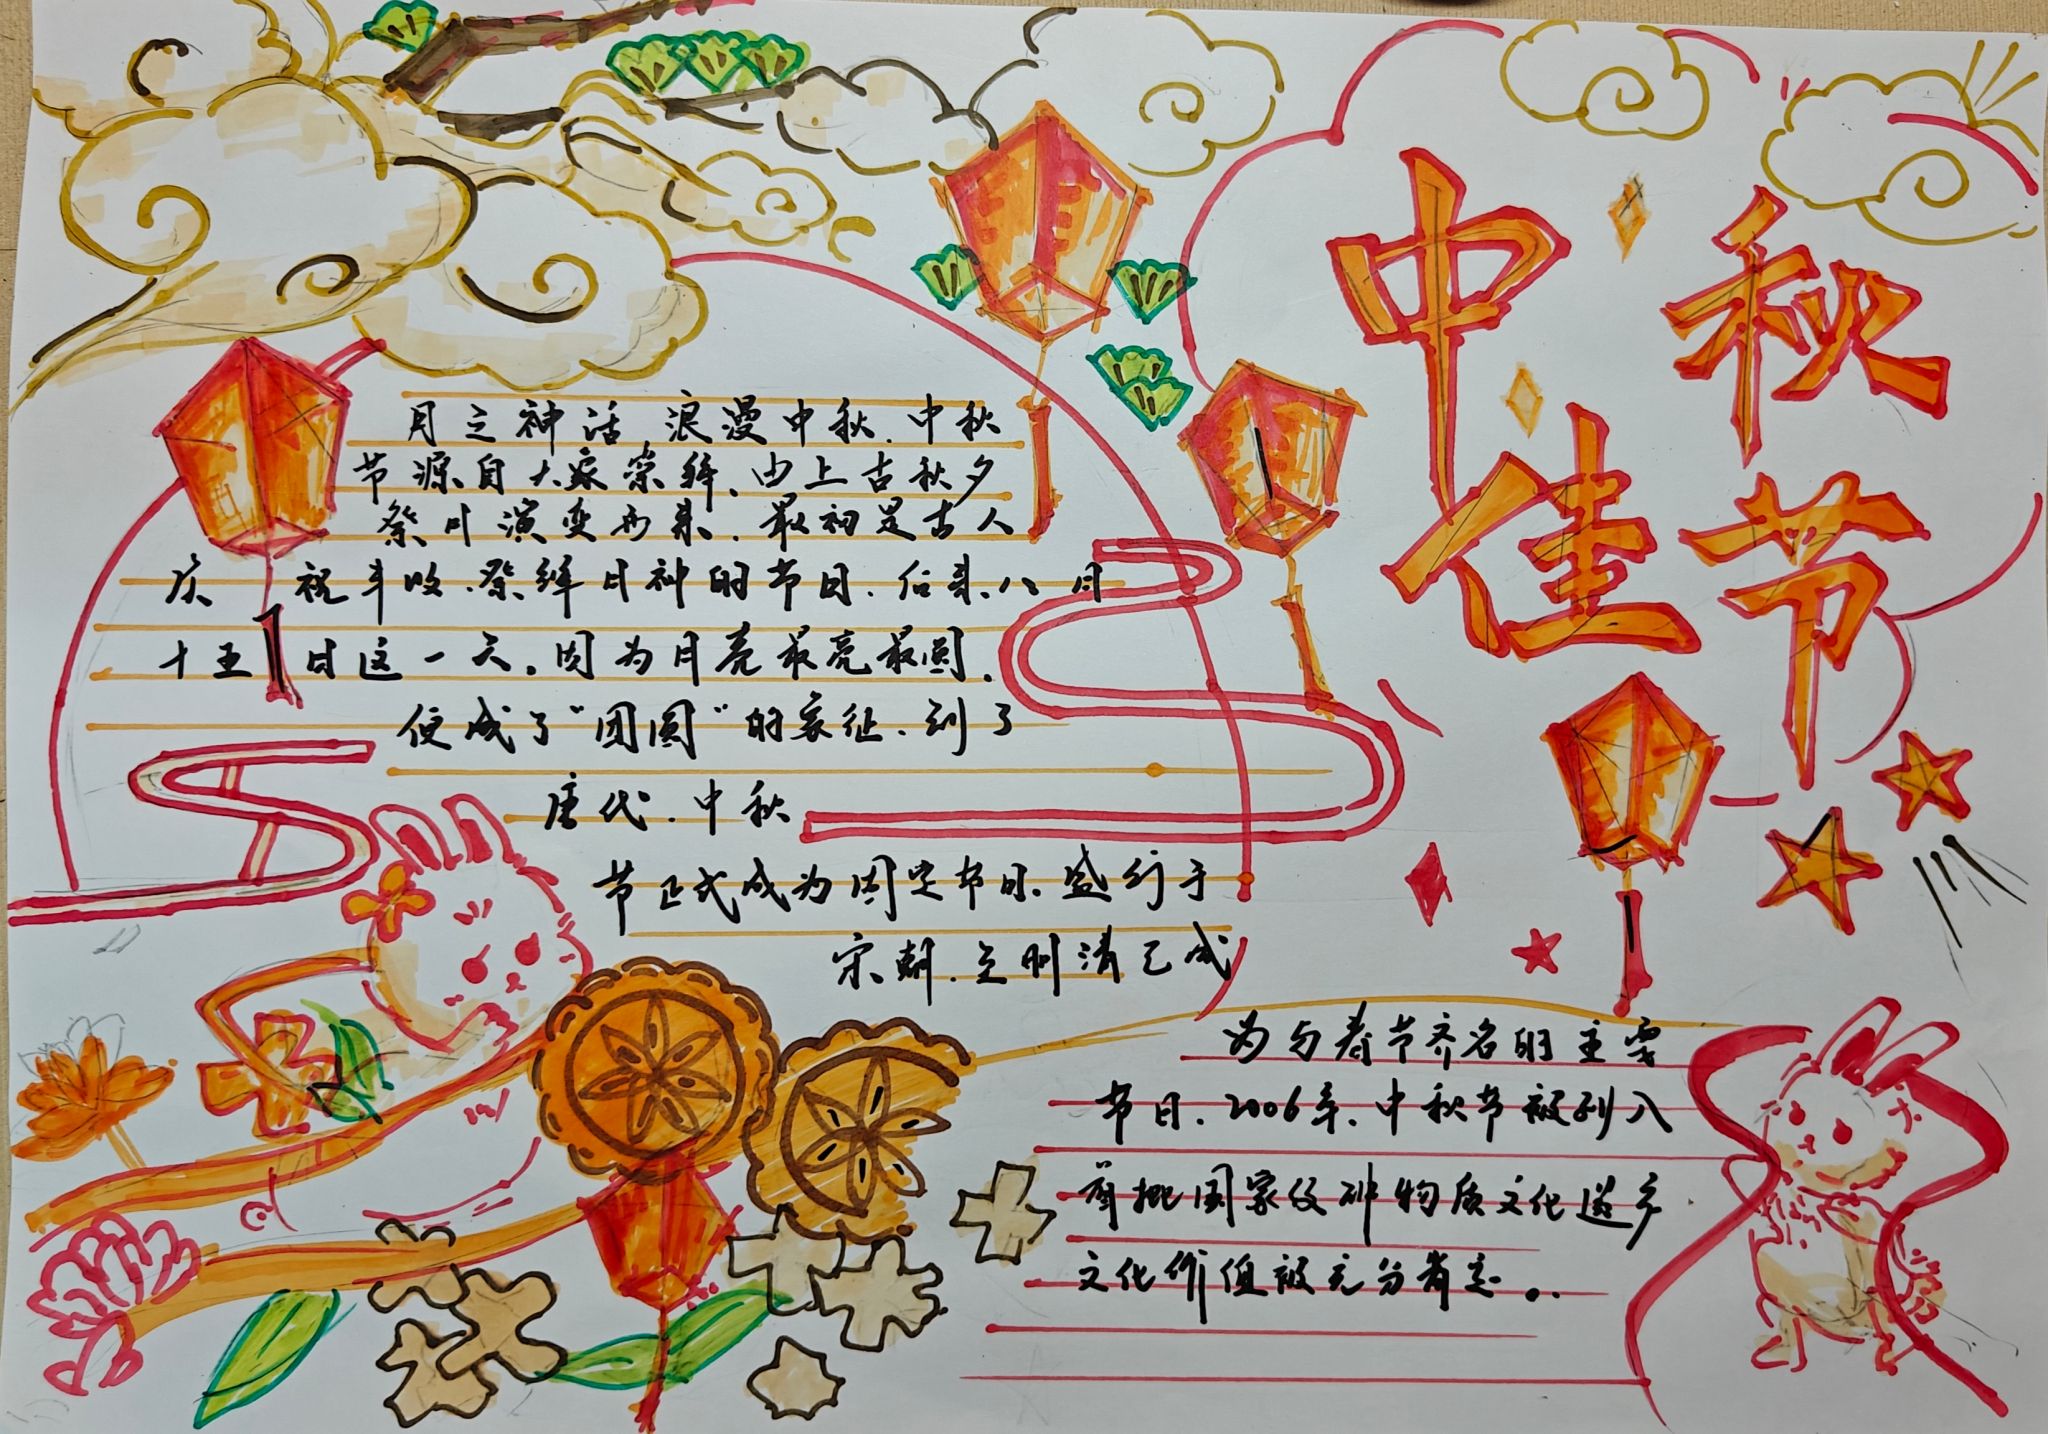 中秋
佳节
月之神话,浪漫中秋.中秋
节源自天象崇拜、由上古秋夕
祭月演变而来.最初是古人
庆祝丰收.祭拜月神的节日.后来八月
十五日这一天。因为月亮最亮最圆.
便成了“团圆”的象征、到了
唐代.中秋
节正式成为固定节日.盛行于
宋朝.至明清已成
为与春节齐名的主要
节日.2006年.中秋节被列入
首批国家级非物质文化遗产
文化价值被充分肯定。